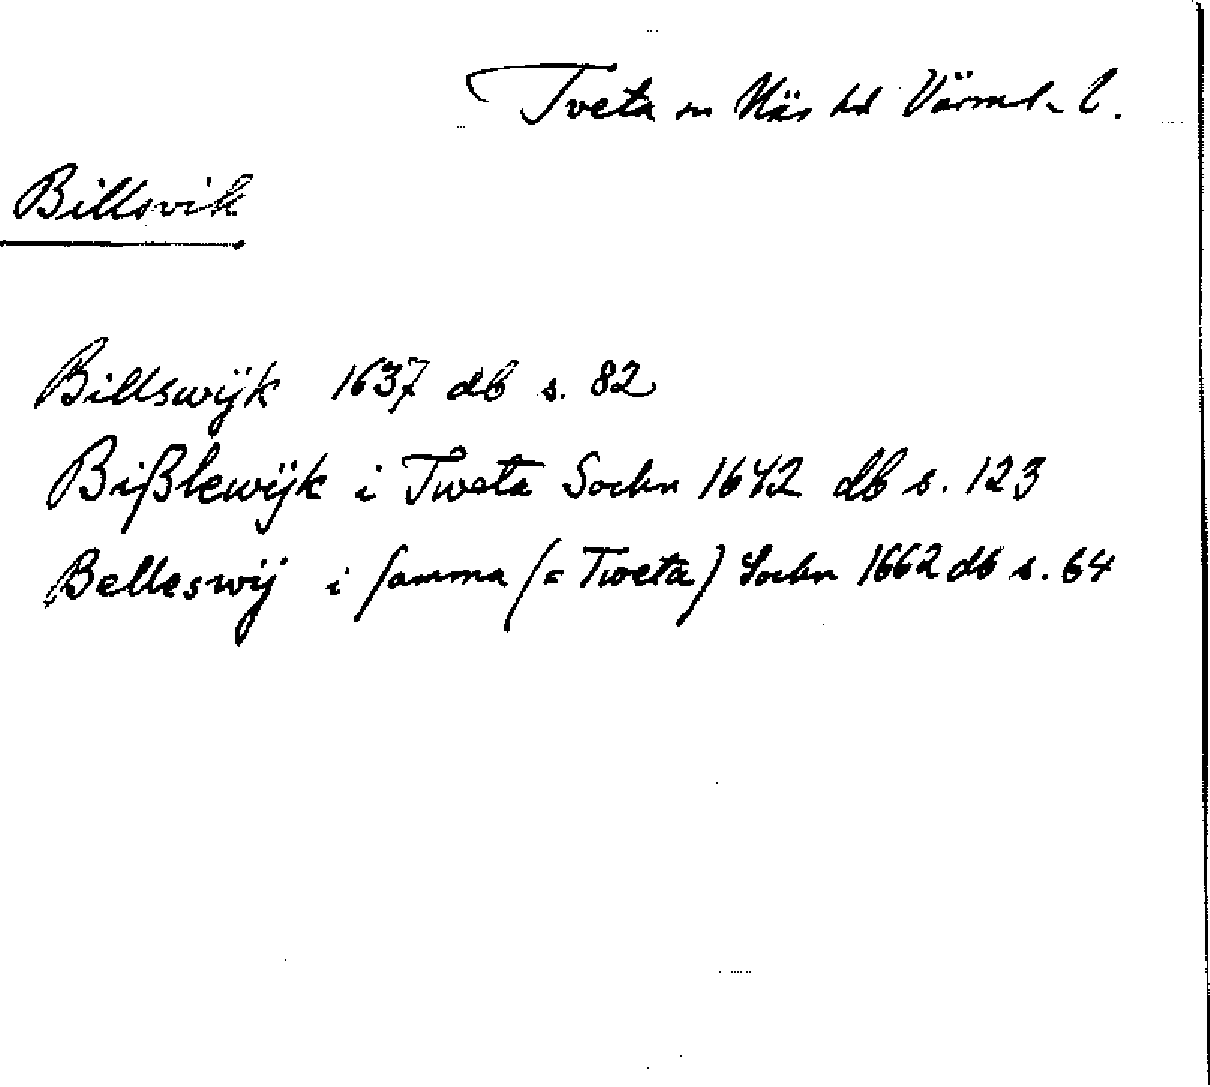 Tveta sn Näs hd Värml. l.
Billsvik
Billswijk 1637 db s. 82
Bißlewijk i Tweta Sochn 1642 db s. 123
Belleswij i samma (= Tweta) Sochn 1662 db s. 64